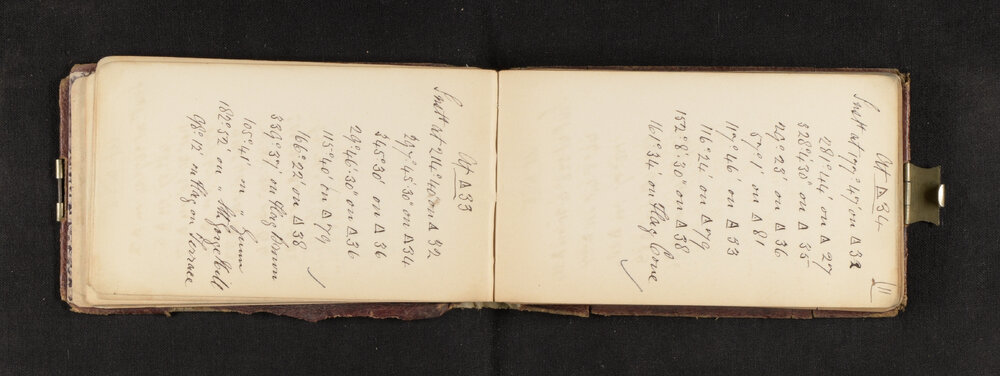 At Δ 34 11
Inst at 177°47' on Δ 32
281°44' on Δ 27
328°4'30" on Δ 35
29°23' on Δ 36
57°1' on Δ 81
117°46' on Δ 33
116°24' on Δ 79
152°8'30" on Δ 38
161°34' on Flag Cone ✓
At Δ 33
Inst at 214°40' on Δ 32
297°45'30" on Δ 34
345°30' on Δ 36
29°46'30" on Δ 36
115°40' on Δ 79
166°22' on Δ 38 ✓
339°37' on Flag
105°41' on "
182°52' on " Hill
98°12' on Flag on Terrace